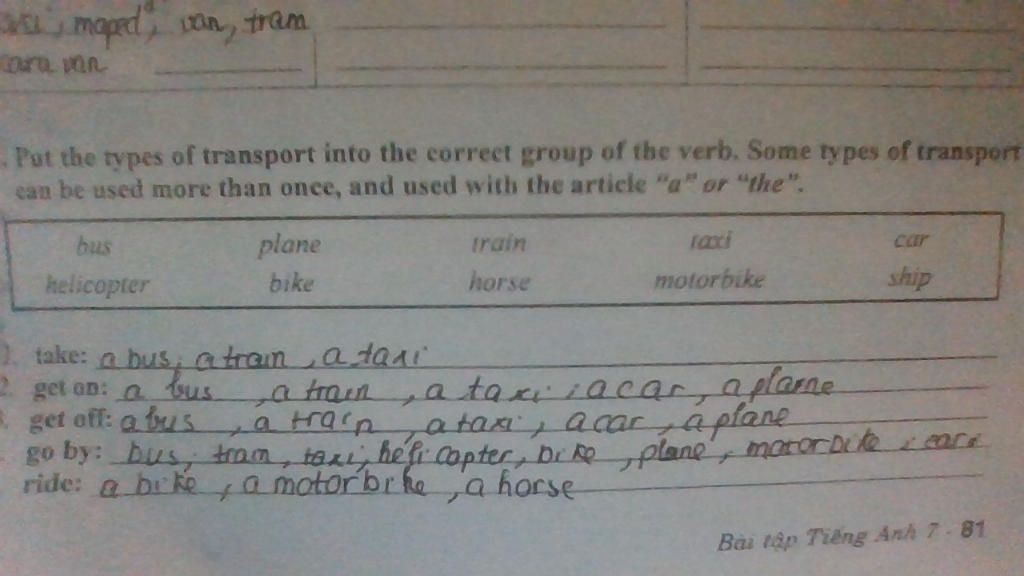 taxi, moped, van, tram
cara van
Put the types of transport into the correct group of the verb. Some types of transport
can be used more than once, and used with the article "a" or "the".
bus plane train taxi car
helicopter bike horse motorbike ship
1. take: a bus, a train, a taxi
2. get on: a bus, a train, a taxi, a car, a plane
3. get off: a bus, a train, a taxi, a car, a plane
go by: bus, train, taxi, helicopter, bike, plane, motorbike, car
ride: a bike, a motorbike, a horse
Bài tập Tiếng Anh 7 - 81